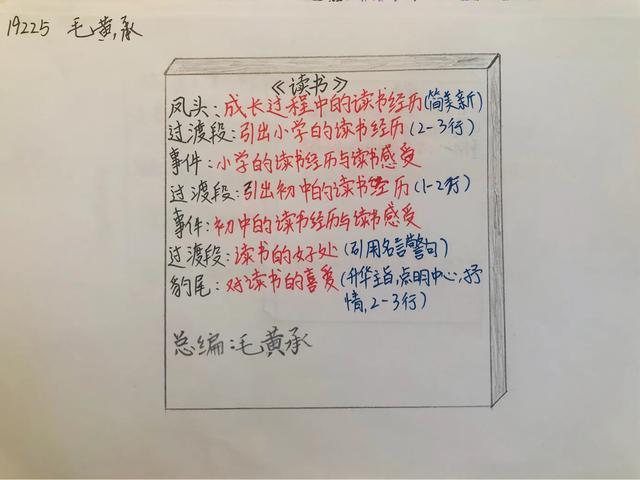 19225 毛黄承
《读书》
凤头:成长过程中的读书经历(简美新)
过渡段:引出小学的读书经历(2-3行)
事件:小学的读书经历与读书感受
过渡段:引出初中的读书经历(1-2行)
事件:初中的读书经历与读书感受
过渡段:读书的好处(引用名言警句)
豹尾:对读书的喜爱(升华主旨,点明中心,抒
情,2-3行)
总编:毛黄承